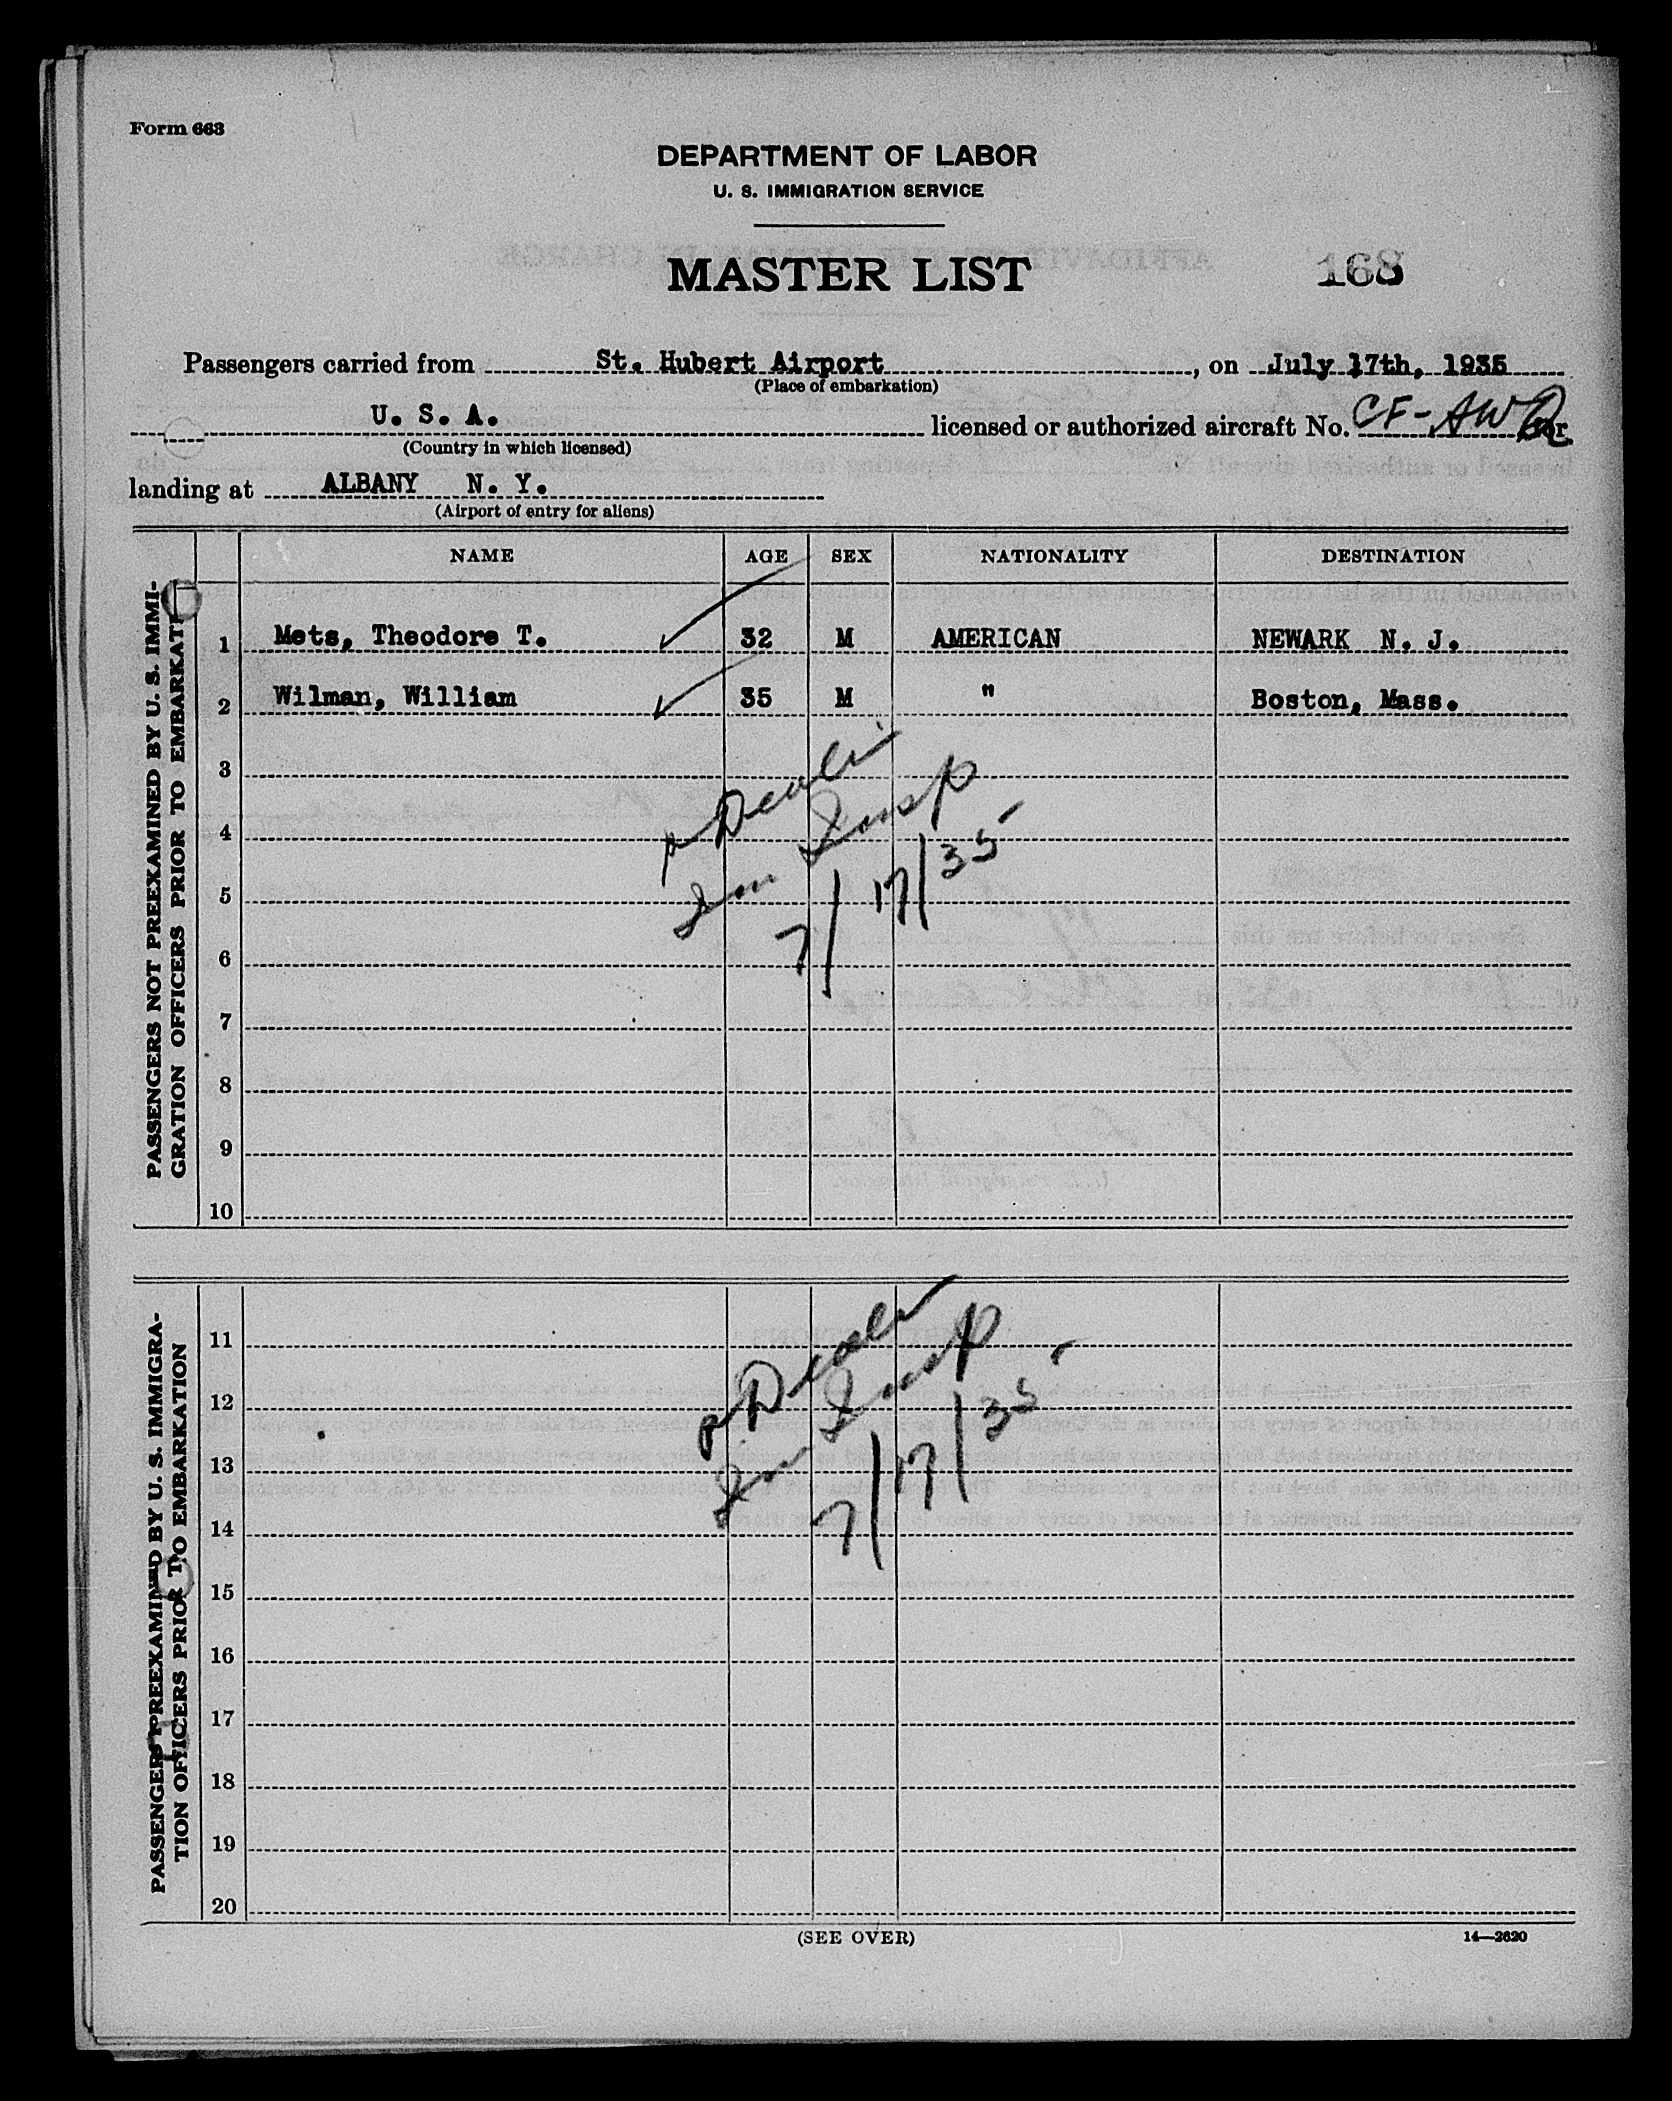 Form 663
DEPARTMENT OF LABOR
U. S. IMMIGRATION SERVICE
MASTER LIST
168
Passengers carried from St. Hubert Airport, on July 17th, 1935
(Place of embarkation)
U. S. A. licensed or authorized aircraft No. CF-AW for
(Country in which licensed)
landing at ALBANY N. Y.
(Airport of entry for aliens)
NAME AGE SEX NATIONALITY DESTINATION
PASSENGERS NOT PREEXAMINED BY U. S. IMMI-
GRATION OFFICERS PRIOR TO EMBARKATI
1 Mets, Theodore T. 32 M AMERICAN NEWARK N. J.
2 Wilman, William 35 M " Boston, Mass.
3
4
5
6
7
8
9
10
Imm Insp
7/17/35
PASSENGERS PREEXAMINED BY U. S. IMMIGRA-
TION OFFICERS PRIOR TO EMBARKATION
11
12
13
14
15
16
17
18
19
20
Imm Insp
7/17/35
(SEE OVER)
14—2620